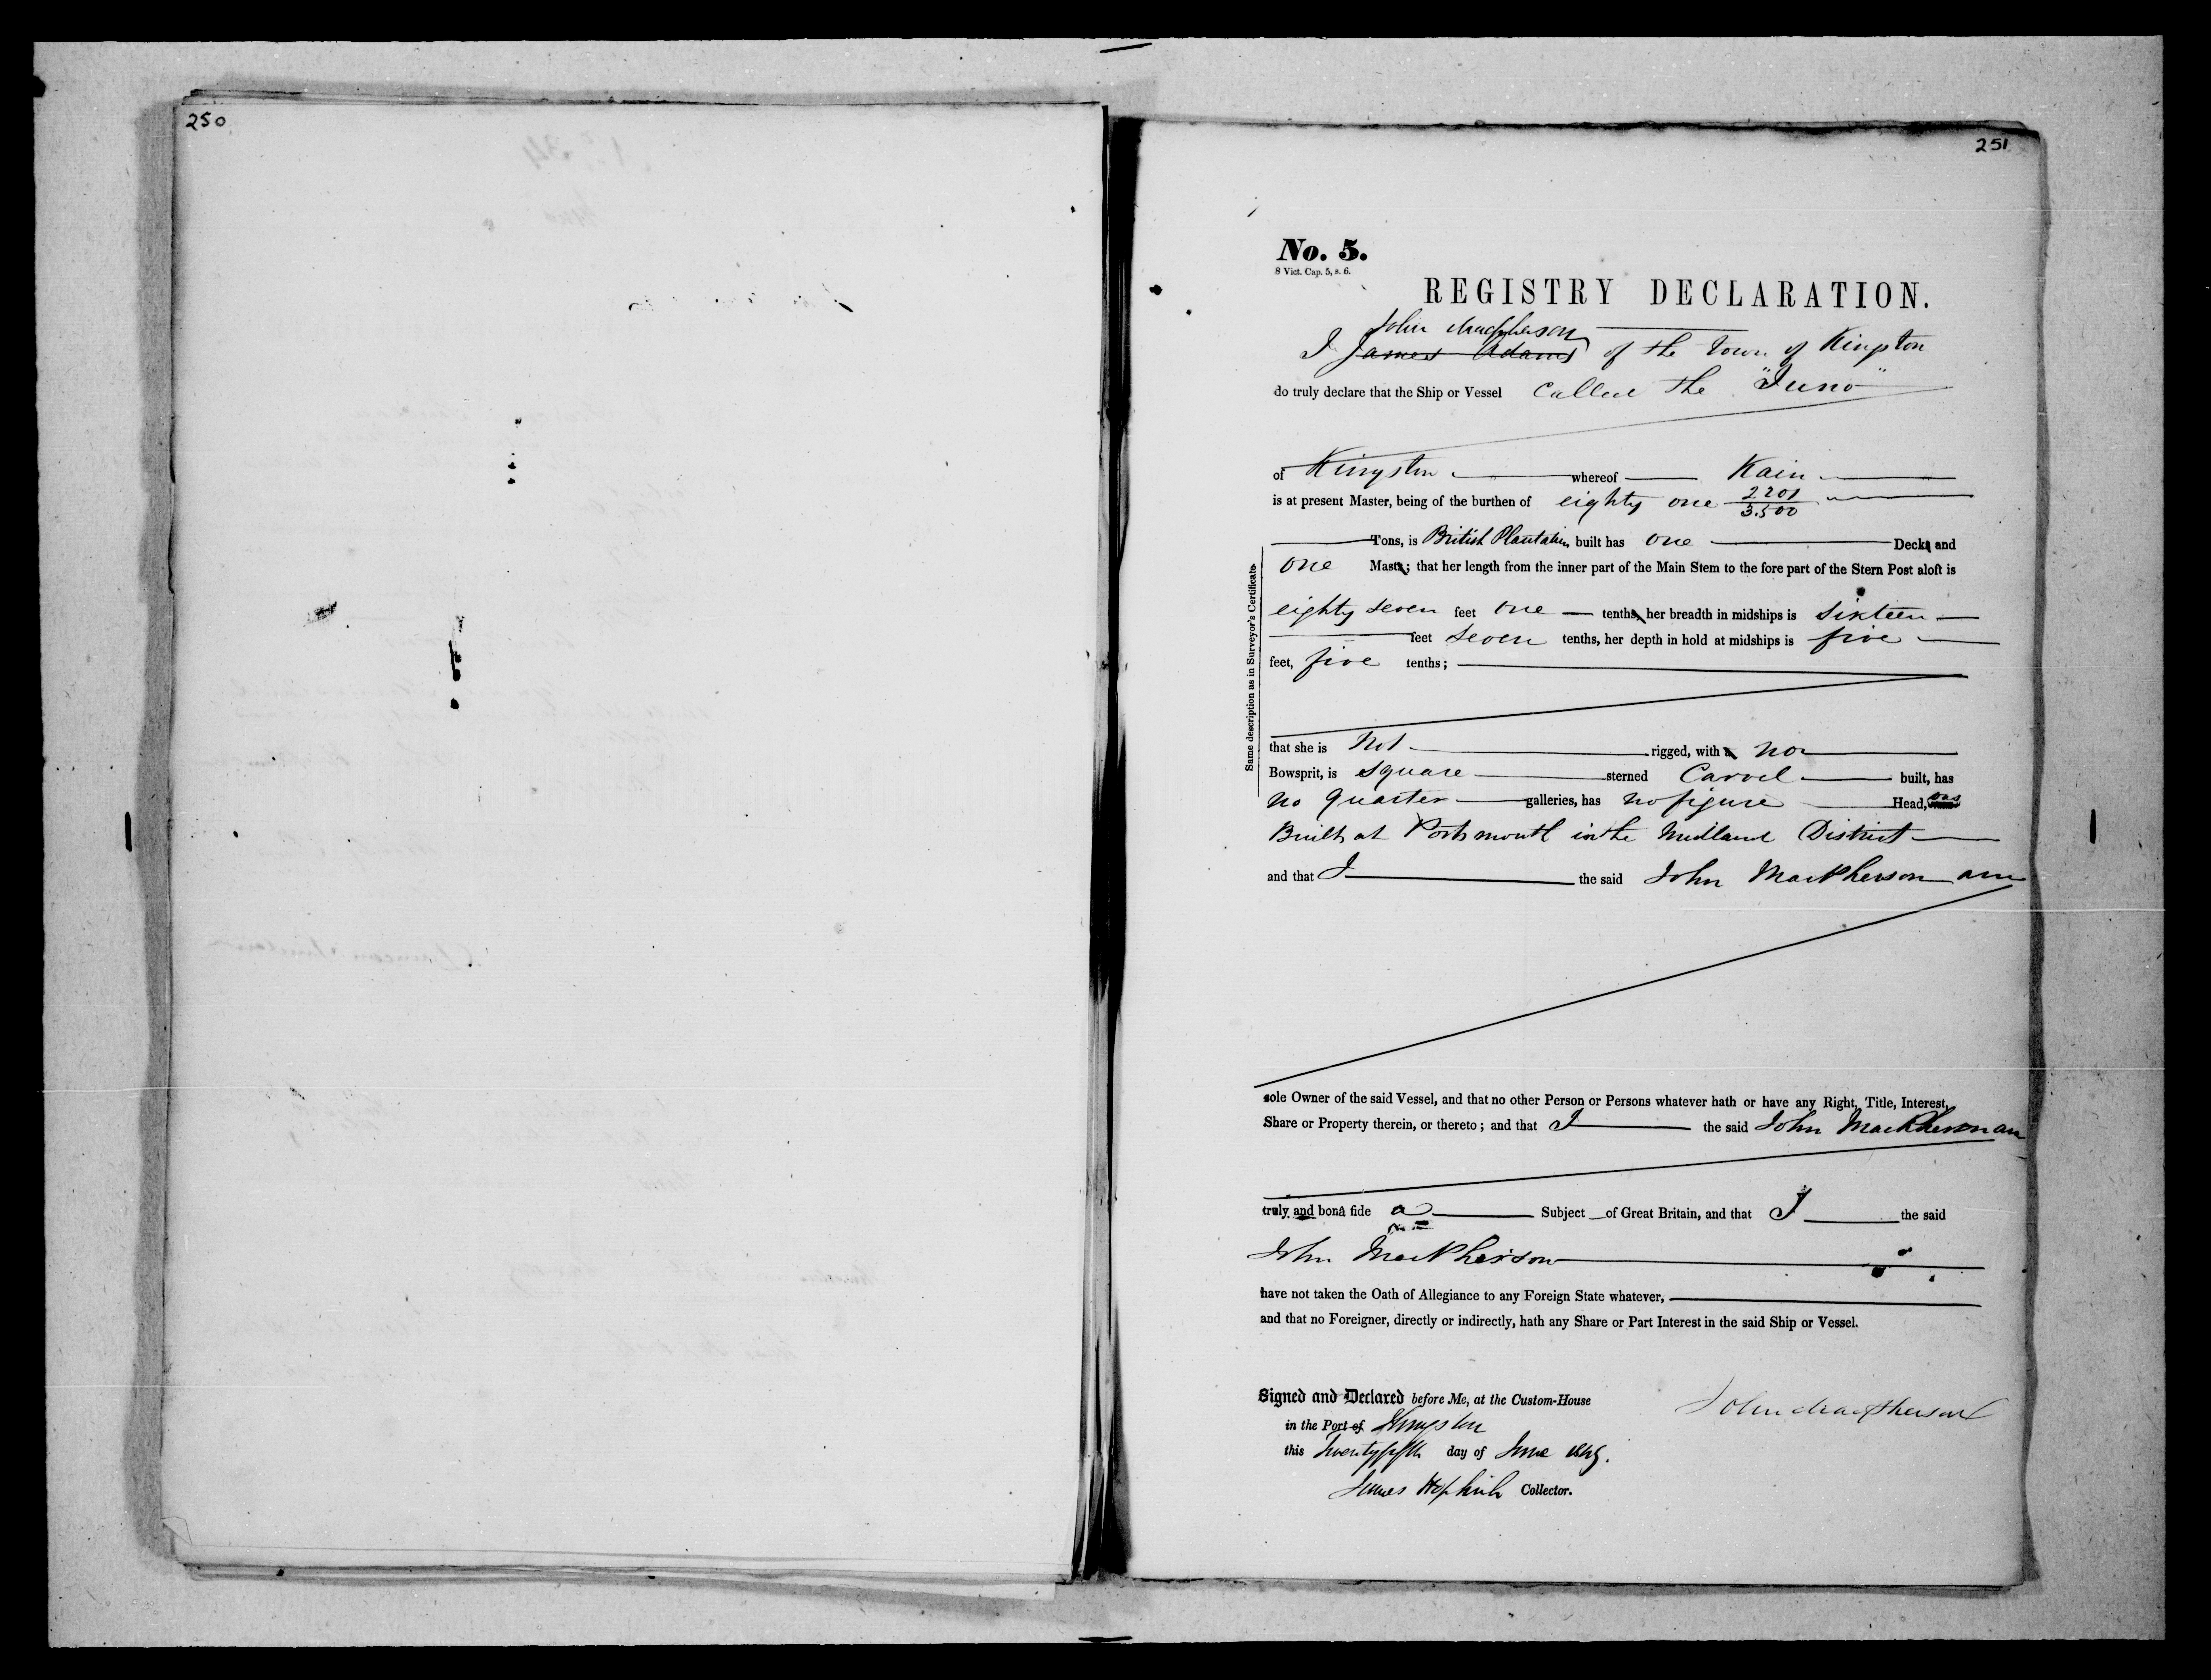 250
251
No. 5.
8 Vict. Cap. 5, s. 6.
REGISTRY DECLARATION.
John Macpherson
I James Adams of the Town of Kingston
do truly declare that the Ship or Vessel Called the "Juno"
of Kingston whereof Kain
is at present Master, being of the burthen of eighty one 2201/3500
Tons, is British Plantation built has one Decks and
one Masts; that her length from the inner part of the Main Stem to the fore part of the Stern Post aloft is
eighty seven feet one tenths, her breadth in midships is sixteen
feet seven tenths, her depth in hold at midships is five
feet, five tenths;
Same description as in Surveyor's Certificate
that she is Not rigged, with a no
Bowsprit, is square sterned Carvel built, has
no quarter galleries, has no figure Head, was
Built at Portsmouth in the Midland District
and that I the said John MacPherson am
sole Owner of the said Vessel, and that no other Person or Persons whatever hath or have any Right, Title, Interest,
Share or Property therein, or thereto; and that I the said John MacPherson am
truly and bonâ fide a Subject of Great Britain, and that I the said
John MacPherson
have not taken the Oath of Allegiance to any Foreign State whatever,
and that no Foreigner, directly or indirectly, hath any Share or Part Interest in the said Ship or Vessel.
Signed and Declared before Me, at the Custom-House
John Macpherson
in the Port of Kingston
this Twenty fifth day of June 1845.
James Hopkirk Collector.